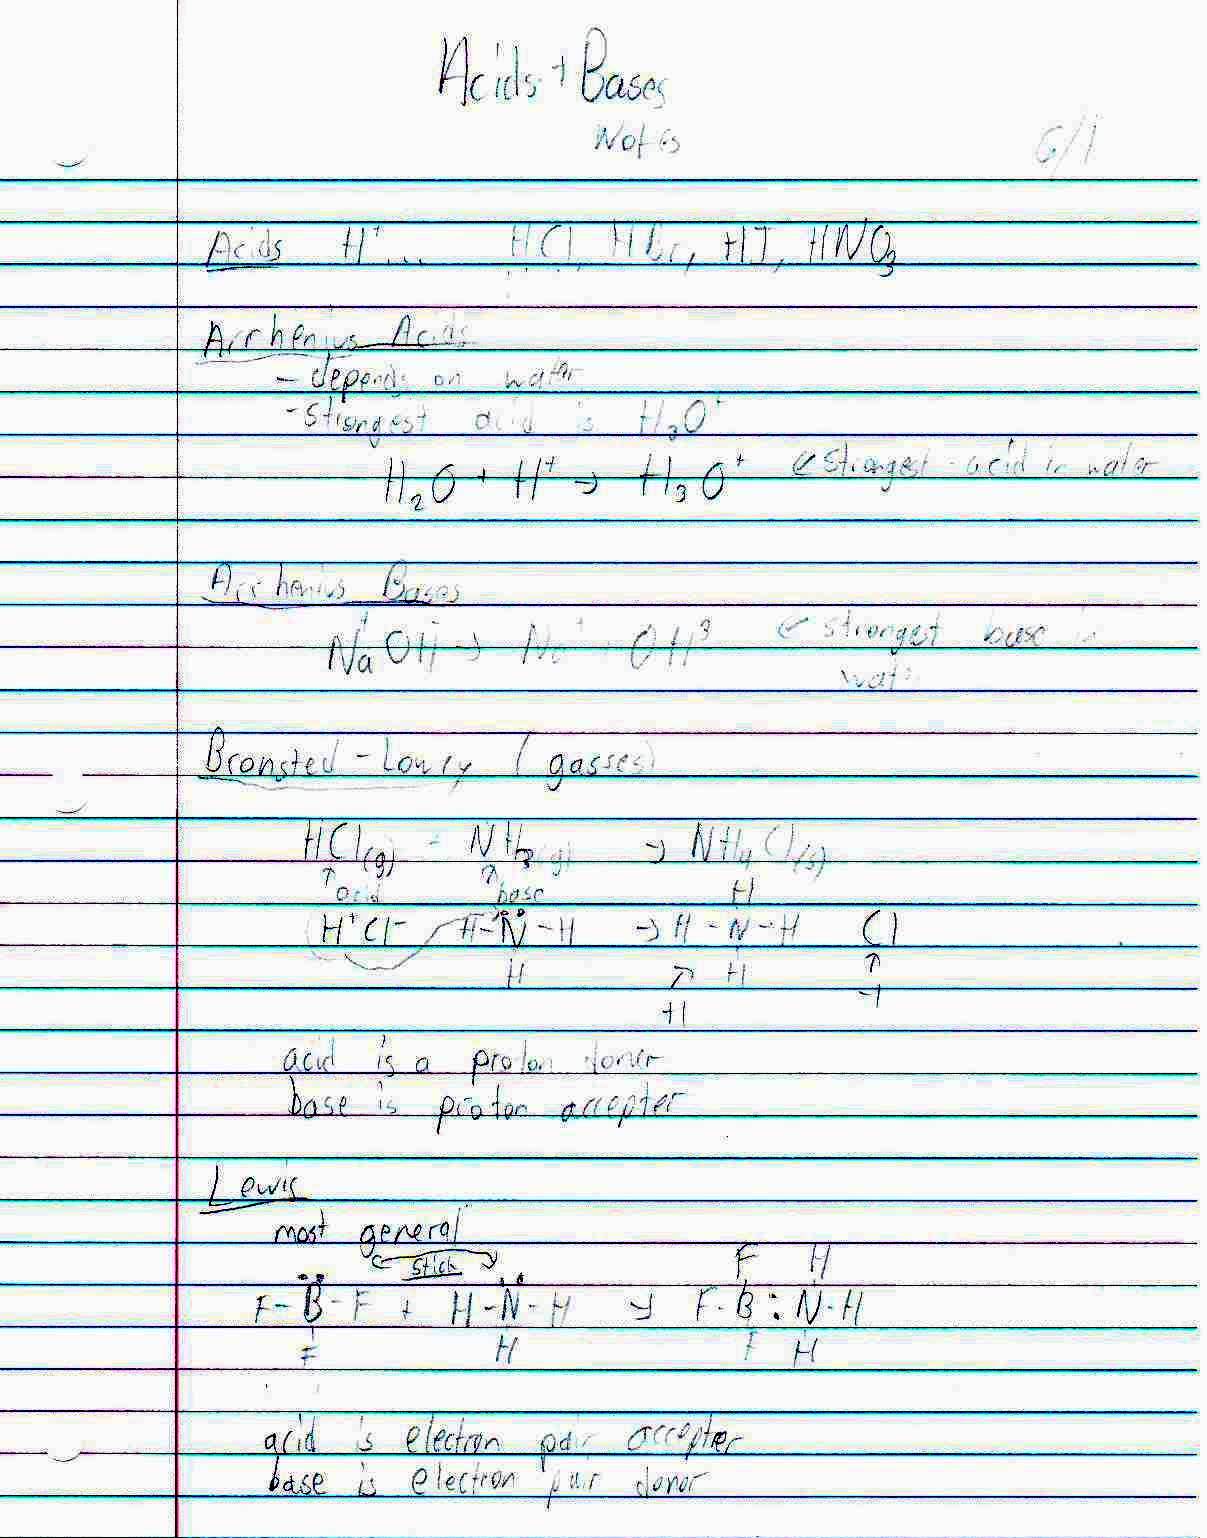 Acids + Bases
Notes
6/1
Acids H⁺... HCl, HBr, HI, HNO₃
Arrhenius Acids
- depends on water
- strongest acid is H₃O⁺
H₂O + H⁺ → H₃O⁺ ← strongest acid in water
Arrhenius Bases
NaOH → Na⁺ + OH ← strongest base in
water
Bronsted-Lowry (gasses)
HCl(g) + NH₃(g) → NH₄Cl(s)
↑ ↑
acid base H
H⁺Cl⁻ H-N-H → H-N-H Cl
H ↗ H ↑
+1 -1
acid is a proton donor
base is proton accepter
Lewis
most general
stick F H
F-B-F + H-N-H → F-B:N-H
F H F H
acid is electron pair accepter
base is electron pair donor